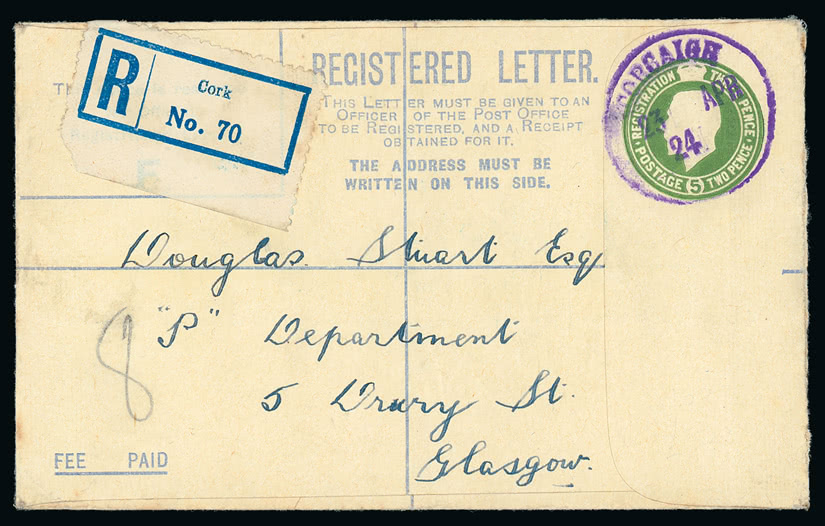 R
Cork
No. 70
REGISTERED LETTER.
THIS LETTER MUST BE GIVEN TO AN
OFFICER OF THE POST OFFICE
TO BE REGISTERED, AND A RECEIPT
OBTAINED FOR IT.
THE ADDRESS MUST BE
WRITTEN ON THIS SIDE.
CORCAIGH
23 APR
24
REGISTRATION THREE PENCE
POSTAGE (5) TWO PENCE
Douglas Stuart Esq
"P" Department
5 Drury St.
Glasgow.
8
FEE PAID